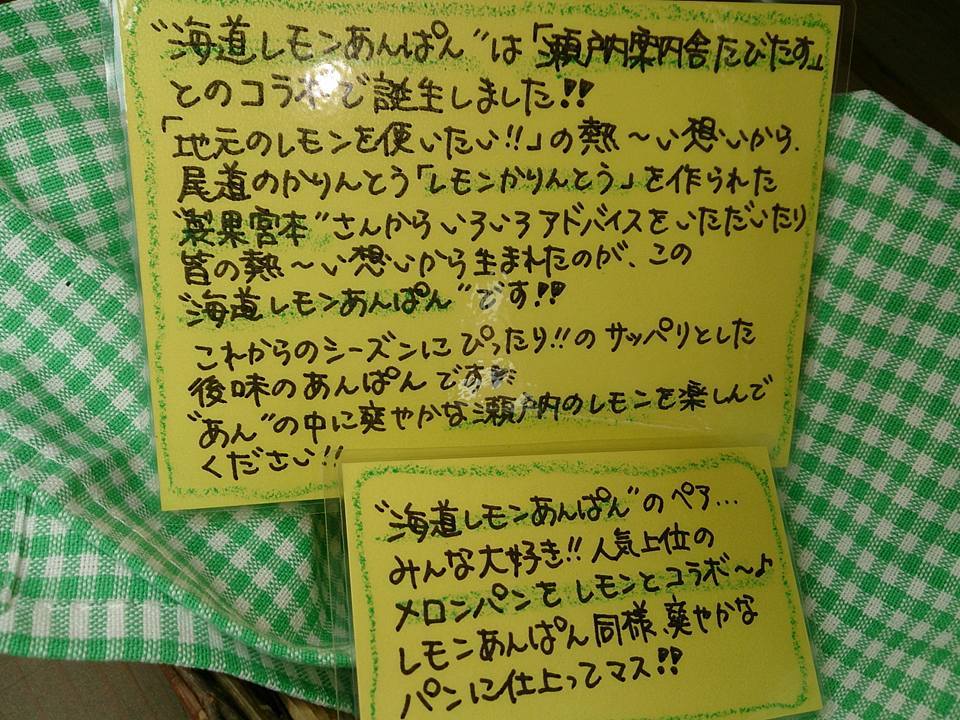 "海道レモンあんぱん"は「瀬戸内案内舎たびたす」
とのコラボで誕生しました!!
「地元のレモンを使いたい!!」の熱〜い想いから、
尾道のかりんとう「レモンかりんとう」を作られた
"製果宮本"さんからいろいろアドバイスをいただいたり
皆の熱〜い想いから生まれたのが、この
"海道レモンあんぱん"です!!
これからのシーズンにぴったり!!のサッパリとした
後味のあんぱんです
"あん"の中に爽やかな瀬戸内のレモンを楽しんで
ください!!
"海道レモンあんぱん"のペア...
みんな大好き!!人気上位の
メロンパンをレモンとコラボ〜♪
レモンあんぱん同様、爽やかな
パンに仕上ってマス!!